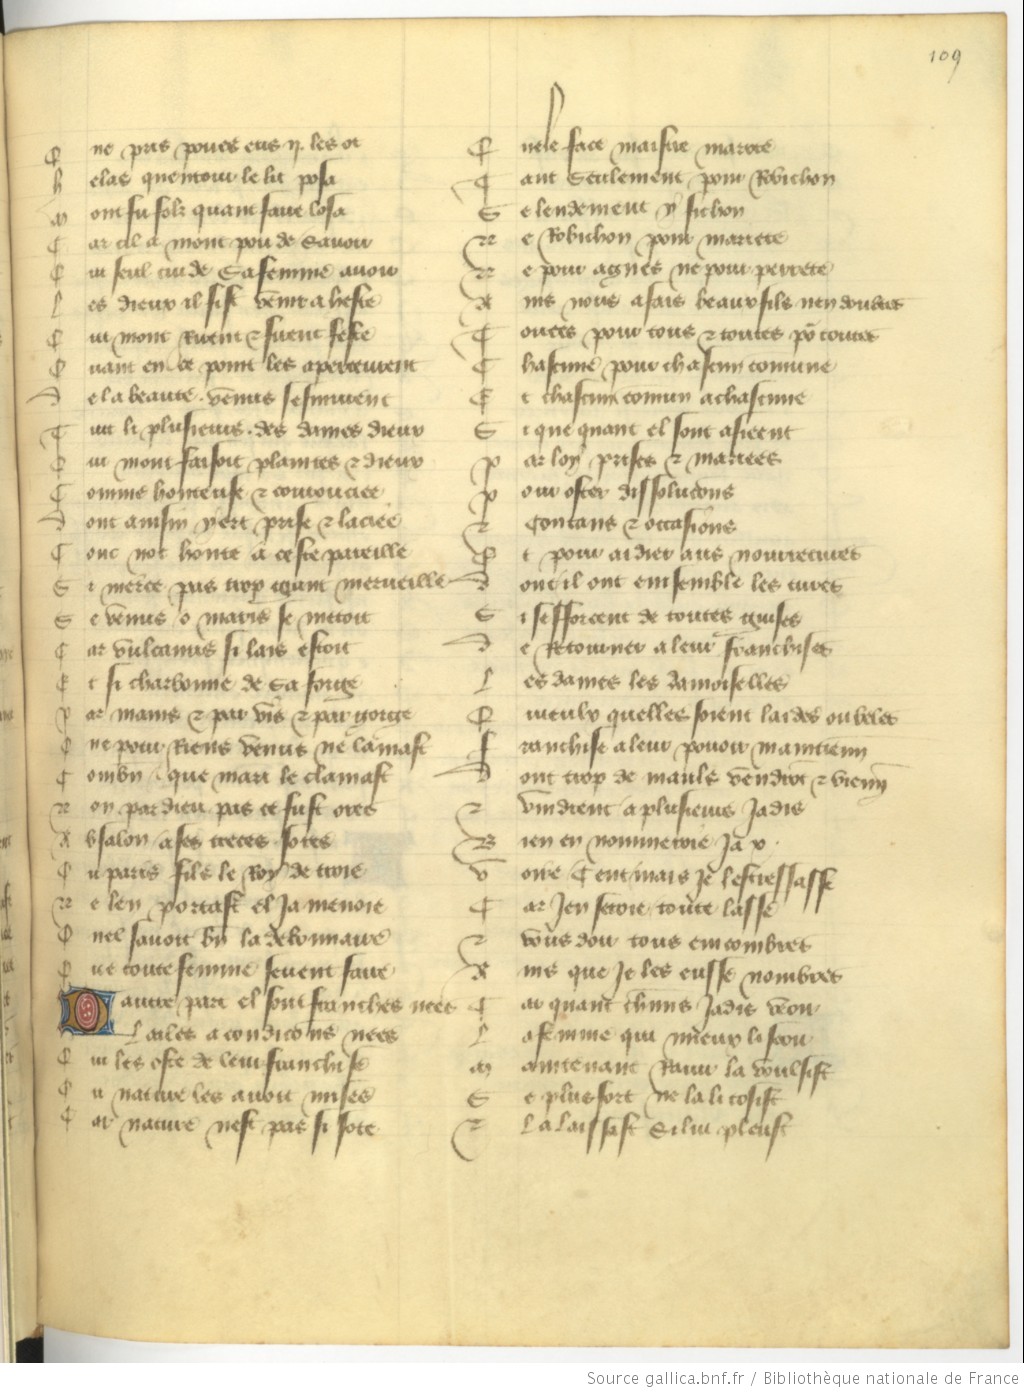 109
Q ne pris prouez eus .ij. les ot
h elas quentour le lit posa
m ont fu folz quant faire losa
C ar cil a mont pou de sauoir
Q ui seul cuide sa femme auoir
L es dieux il fist venir a heste
Q ui mont rirent et firent feste
Q uant en ce point les aperceurent
D e la beaute venus sesmurent
T uit li plusieurs des dames dieux
Q ui mont faisoit plaintes et dieux
C omme honteuse et couroucee
D ont ainsin yert prise et laciee
C onc not honte a ceste pareille
S i nierce pas trop grant merueille
S e venus o maris se metoit
C ar vulcanus si lais estoit
E t si charbonne de sa forge
P ar mains et par vis et par gorge
Q ne pour riens venus ne lamast
C ombn que mari le clamast
N on par dieu pas ce fust ores
A bsalon a ses treces sores
O u paris filz le Roy de troie
N e len portast el ja menoie
Q nel sauoit bn la debonnaire
Q ue toute femme seuent faire
D autre part el sont franches nees
L ailes a condicons nees
Q ui les oste de leur franchise
O u nature les auoit mises
C ar nature nest pas si sote
Q nele face naistre marote
T ant seulement pour Robichon
S e lendement y fichon
N e Robichon pour mariete
N e pour agnes ne pour perrete
A ins nous a fais beaux filz nen doubtes
T outes pour tous et toutes po toutes
C hascune pour chascun comune
E t chascun comun a chascune
S i que quant el sont afieent
P ar loy prises et mariees
P our oster dissolucons
Et Contans et occasions
E t pour aidier aus nourretures
D ont il ont emsemble les cures
S i sefforcent de toutes guises
D e Retourner a leur franchises
L es dames les damoiselles
Q uieulx quelles soient laides ou beles
F ranchise a leur pouoir maintienn
D ont trop de maulx vendrot et vienn
Et vindrent a plusieurs jadis
B ien en nommeroie ja x
V oire Cent mais je lestressasse
C ar jen seroie toute lasse
Et vous dou tous emcombres
A ins que je les eusse nombres
C ar quant chnus jadis veou
L a femme qui mieux li seou
M aintenant Rauir la voulsist
S e plus fort ne la li tosist
Et La laissast si lui pleust
Source gallica.bnf.fr / Bibliothèque nationale de France